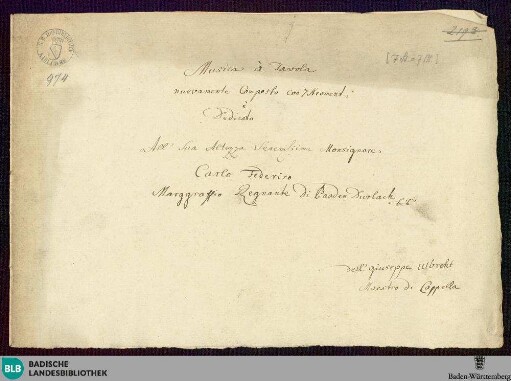 2198
974
Musica à Tavola
nuovamente Composto con 7 Stroment:
è
Dedicato
All' Sua Altezza Serenissima Monsignore
Carlo Federico
Marggraffio Regnante di Baaden
dell' Giuseppe
Maestro di Cappella
BLB
BADISCHE
LANDESBIBLIOTHEK
Baden-Württemberg